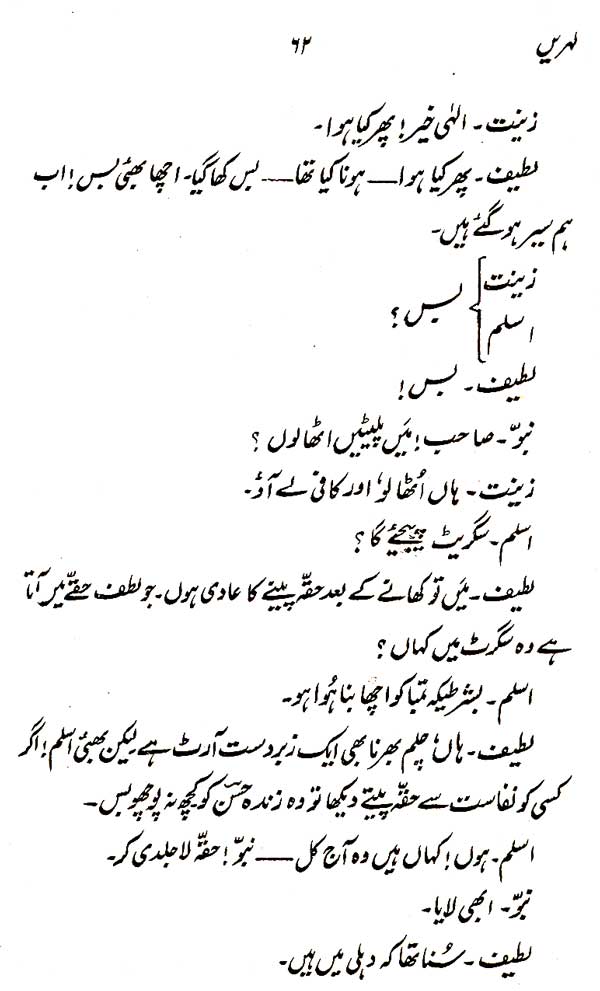 لہریں ۶۲
زینت۔ الہٰی خیر! پھر کیا ہوا۔
لطیف۔ پھر کیا ہوا — ہونا کیا تھا — بس کھا گیا۔ اچھا بھئی بس! اب
ہم سیر ہو گئے ہیں۔
زینت
بس؟
اسلم
لطیف۔ بس!
نبوّ۔ صاحب! مَیں پلیٹیں اٹھا لوں؟
زینت۔ ہاں اُٹھا لو، اور کافی لے آؤ۔
اسلم۔ سگریٹ پیجیئے گا؟
لطیف۔ مَیں تو کھانے کے بعد حقّہ پینے کا عادی ہوں۔ جو لطف حقّے میں آتا
ہے وہ سگرٹ میں کہاں؟
اسلم۔ بشرطیکہ تمباکو اچھا بنا ہُوا ہو۔
لطیف۔ ہاں، چلم بھرنا بھی ایک زبردست آرٹ ہے لیکن بھئی اسلم! اگر
کسی کو نفاست سے حقّہ پیتے دیکھا تو وہ زندہ حسن کو کچھ نہ پوچھو بس۔
اسلم۔ ہوں! کہاں ہیں وہ آج کل — نبوّ! حقّہ لا جلدی کر۔
نبوّ۔ ابھی لایا۔
لطیف۔ سُنا تھا کہ دہلی میں ہیں۔